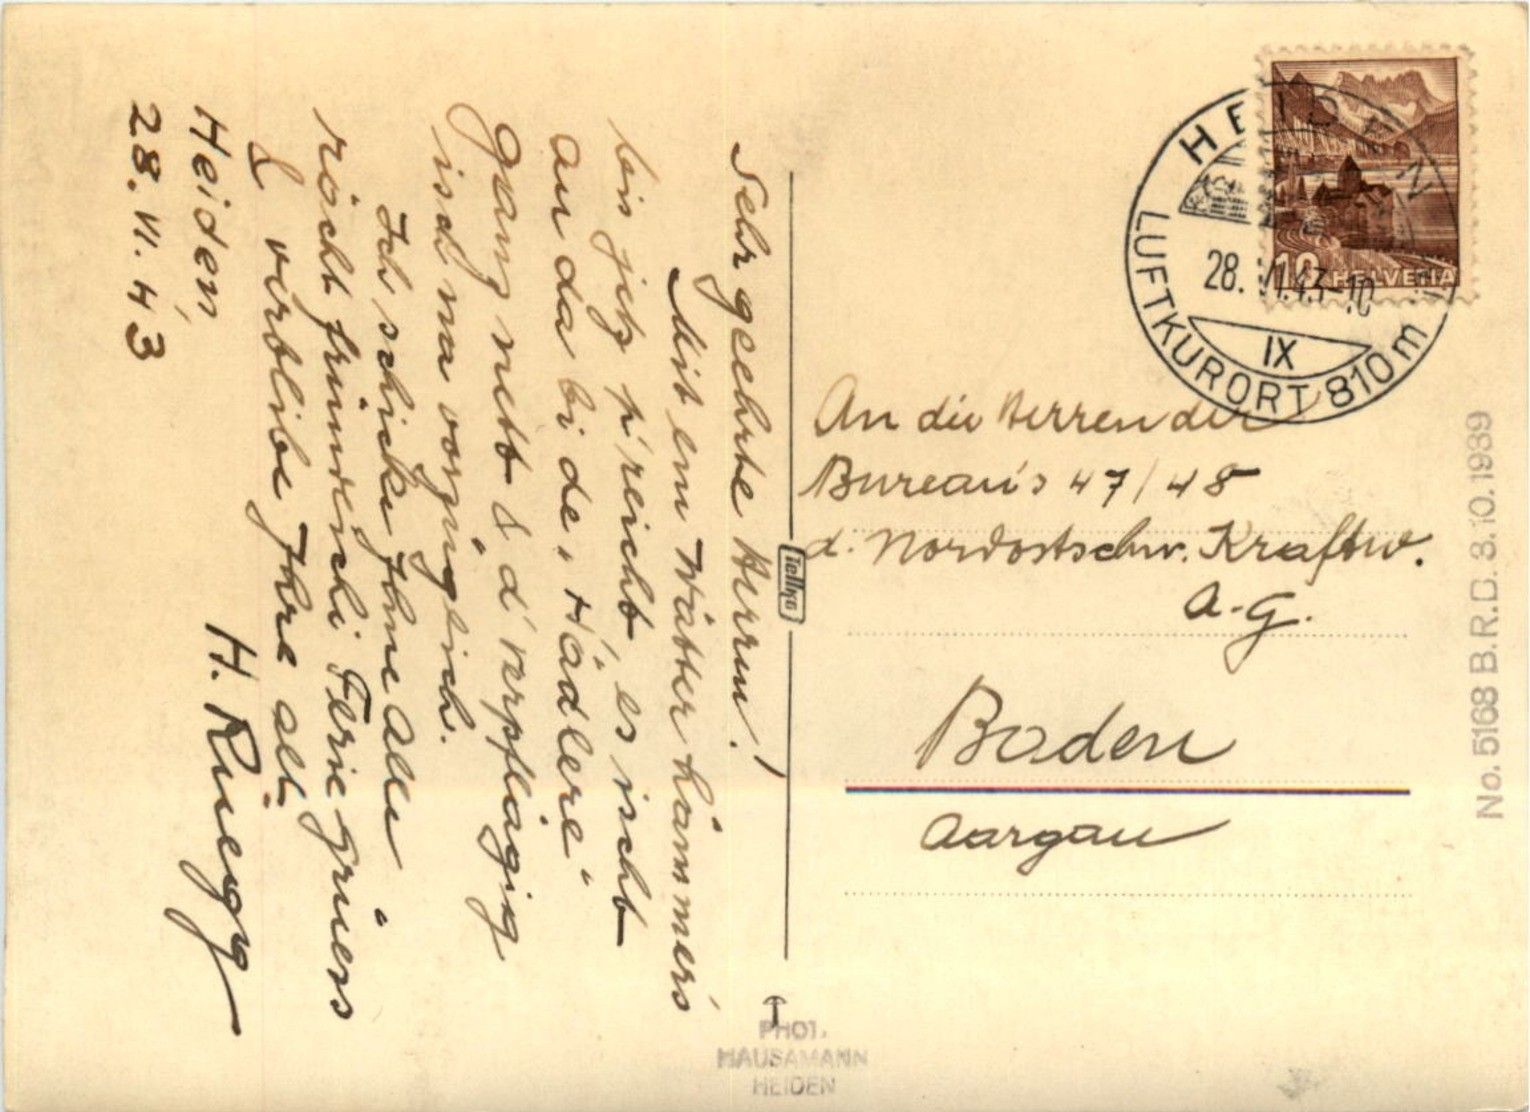 Sehr geehrte Herren!
Mit em Wätter hämmer's
bis jetz preicht, es ischt
au da bi de „Hädlere"
ganz nett & d'verpflägig
isch na vorzüglich.
Ich schicke Ihne alle
röcht fründtschi Ferie grüess
& virblibe Ihre alt
H. Rüegg
Heiden,
28. VI. 43
HEIDEN
28. VI. 43 - 10
IX
LUFTKURORT 810 m
10 HELVETIA
An die Herren der
Bureau's 47/48
d. Nordostschw. Kraftw.
A.-G.
Baden
Aargau
iellko
PHOT.
HAUSAMANN
HEIDEN
No. 5168 B.R.D. 3.10.1939